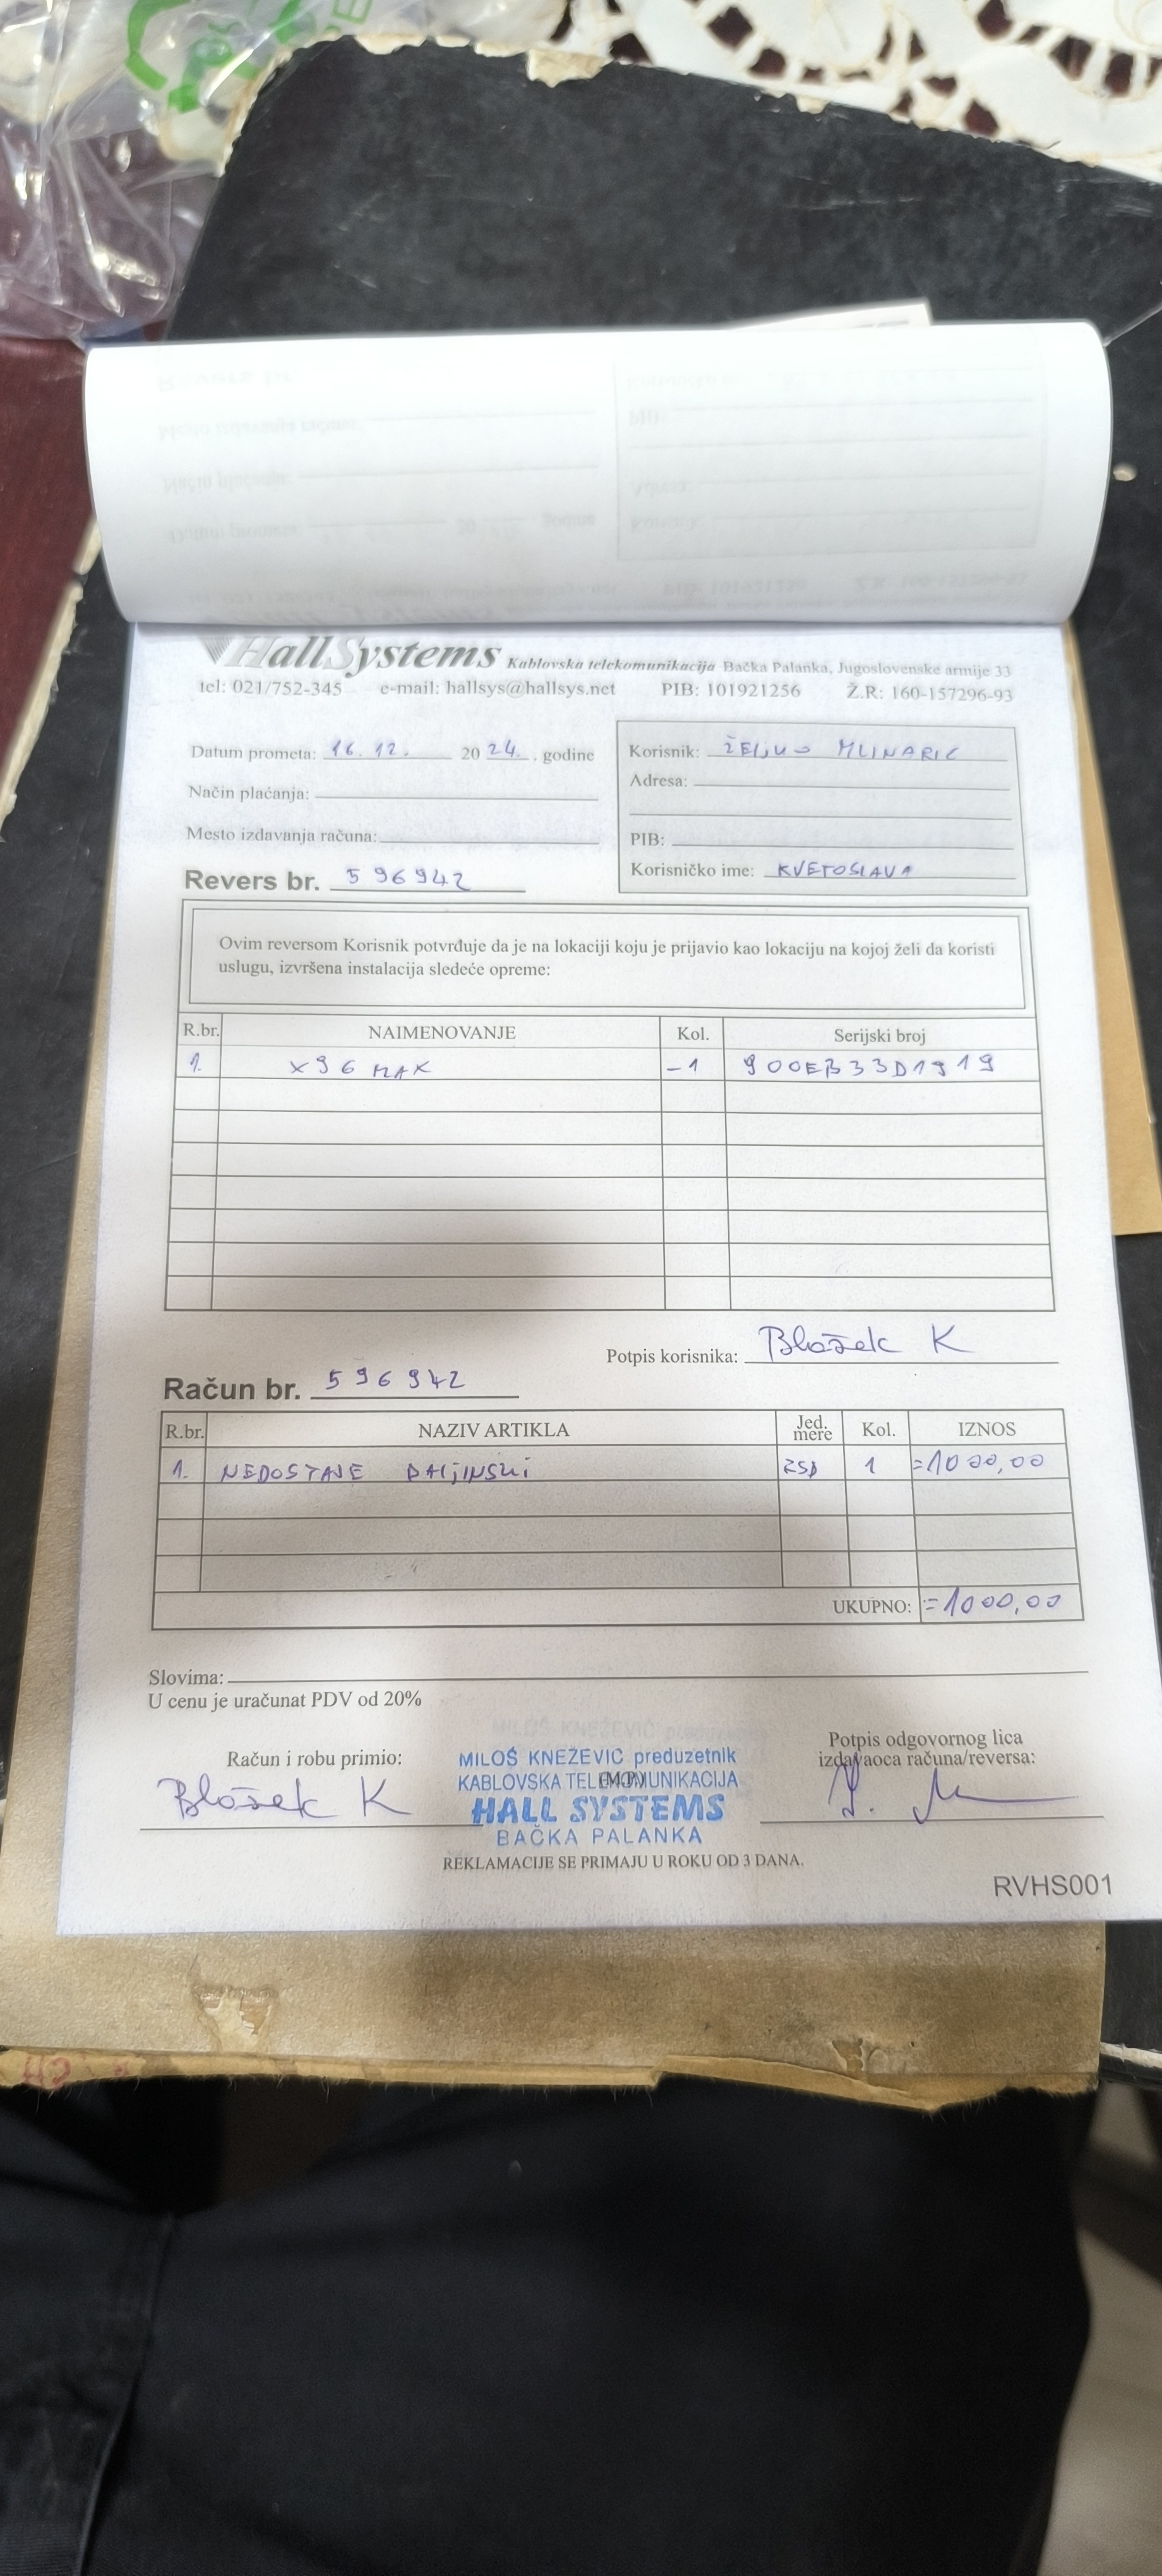 HallSystems Kablovska telekomunikacija Bačka Palanka, Jugoslovenske armije 33
tel: 021/752-345 e-mail: hallsys@hallsys.net PIB: 101921256 Ž.R: 160-157296-93
Datum prometa: 16.12. 20 24. . godine
Način plaćanja:
Mesto izdavanja računa:
Korisnik: ŽELJKO MLINARIC
Adresa:
PIB:
Korisničko ime: KVETOSLAVA
Revers br. 596942
Ovim reversom Korisnik potvrđuje da je na lokaciji koju je prijavio kao lokaciju na kojoj želi da koristi
uslugu, izvršena instalacija sledeće opreme:
R.br. NAIMENOVANJE Kol. Serijski broj
1. X96 MAK -1 900EB33D1919
Potpis korisnika: Blažek K
Račun br. 596942
R.br. NAZIV ARTIKLA Jed. mere Kol. IZNOS
1. NEDOSTAJE DALJINSKI 1 =1000,00
UKUPNO: =1000,00
Slovima:
U cenu je uračunat PDV od 20%
Račun i robu primio:
Blažek K
MILOŠ KNEŽEVIĆ preduzetnik
KABLOVSKA TELEKOMUNIKACIJA
(M.P.)
HALL SYSTEMS
BAČKA PALANKA
Potpis odgovornog lica
izdavaoca računa/reversa:
REKLAMACIJE SE PRIMAJU U ROKU OD 3 DANA.
RVHS001